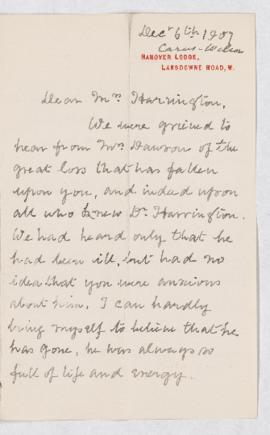 Decr 6th 1907
Carus-Wilson
HANOVER LODGE,
LANSDOWNE ROAD, W.
Dear Mrs Harrington,
We were grieved to
hear from Mrs Dawson of the
great loss that has fallen
upon you, and indeed upon
all who knew Dr Harrington.
We had heard only that he
had been ill, but had no
idea that you were anxious
about him. I can hardly
bring myself to believe that he
has gone, he was always so
full of life and energy.